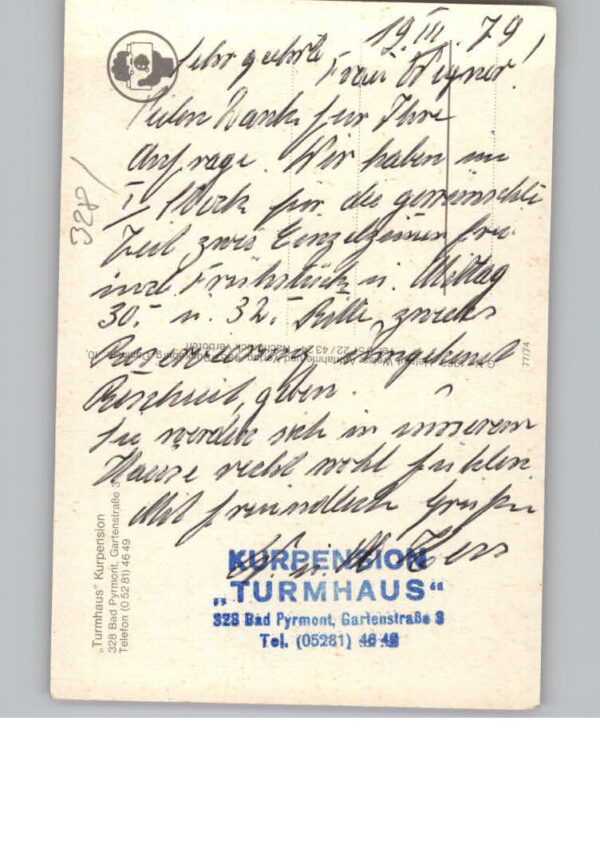 19. III. 79
Sehr geehrte
Frau Wegner!
Vielen Dank für Ihre
Anfrage. Wir haben im
I. Stock für die gewünschte
Zeit zwei Einzelzimmer frei
incl. Frühstück u. Mittag
30.- u. 32.- Bitte, zwecks
Reservierung umgehend
Bescheid, geben.
Sie werden sich in unserem
Hause recht wohl fühlen
Mit freundlich Grüße
u. Hess
328/
KURPENSION
„TURMHAUS“
328 Bad Pyrmont, Gartenstraße 3
Tel. (05281) 46 49
„Turmhaus“ Kurpension
328 Bad Pyrmont, Gartenstraße 3
Telefon (0 52 81) 46 49
77/74